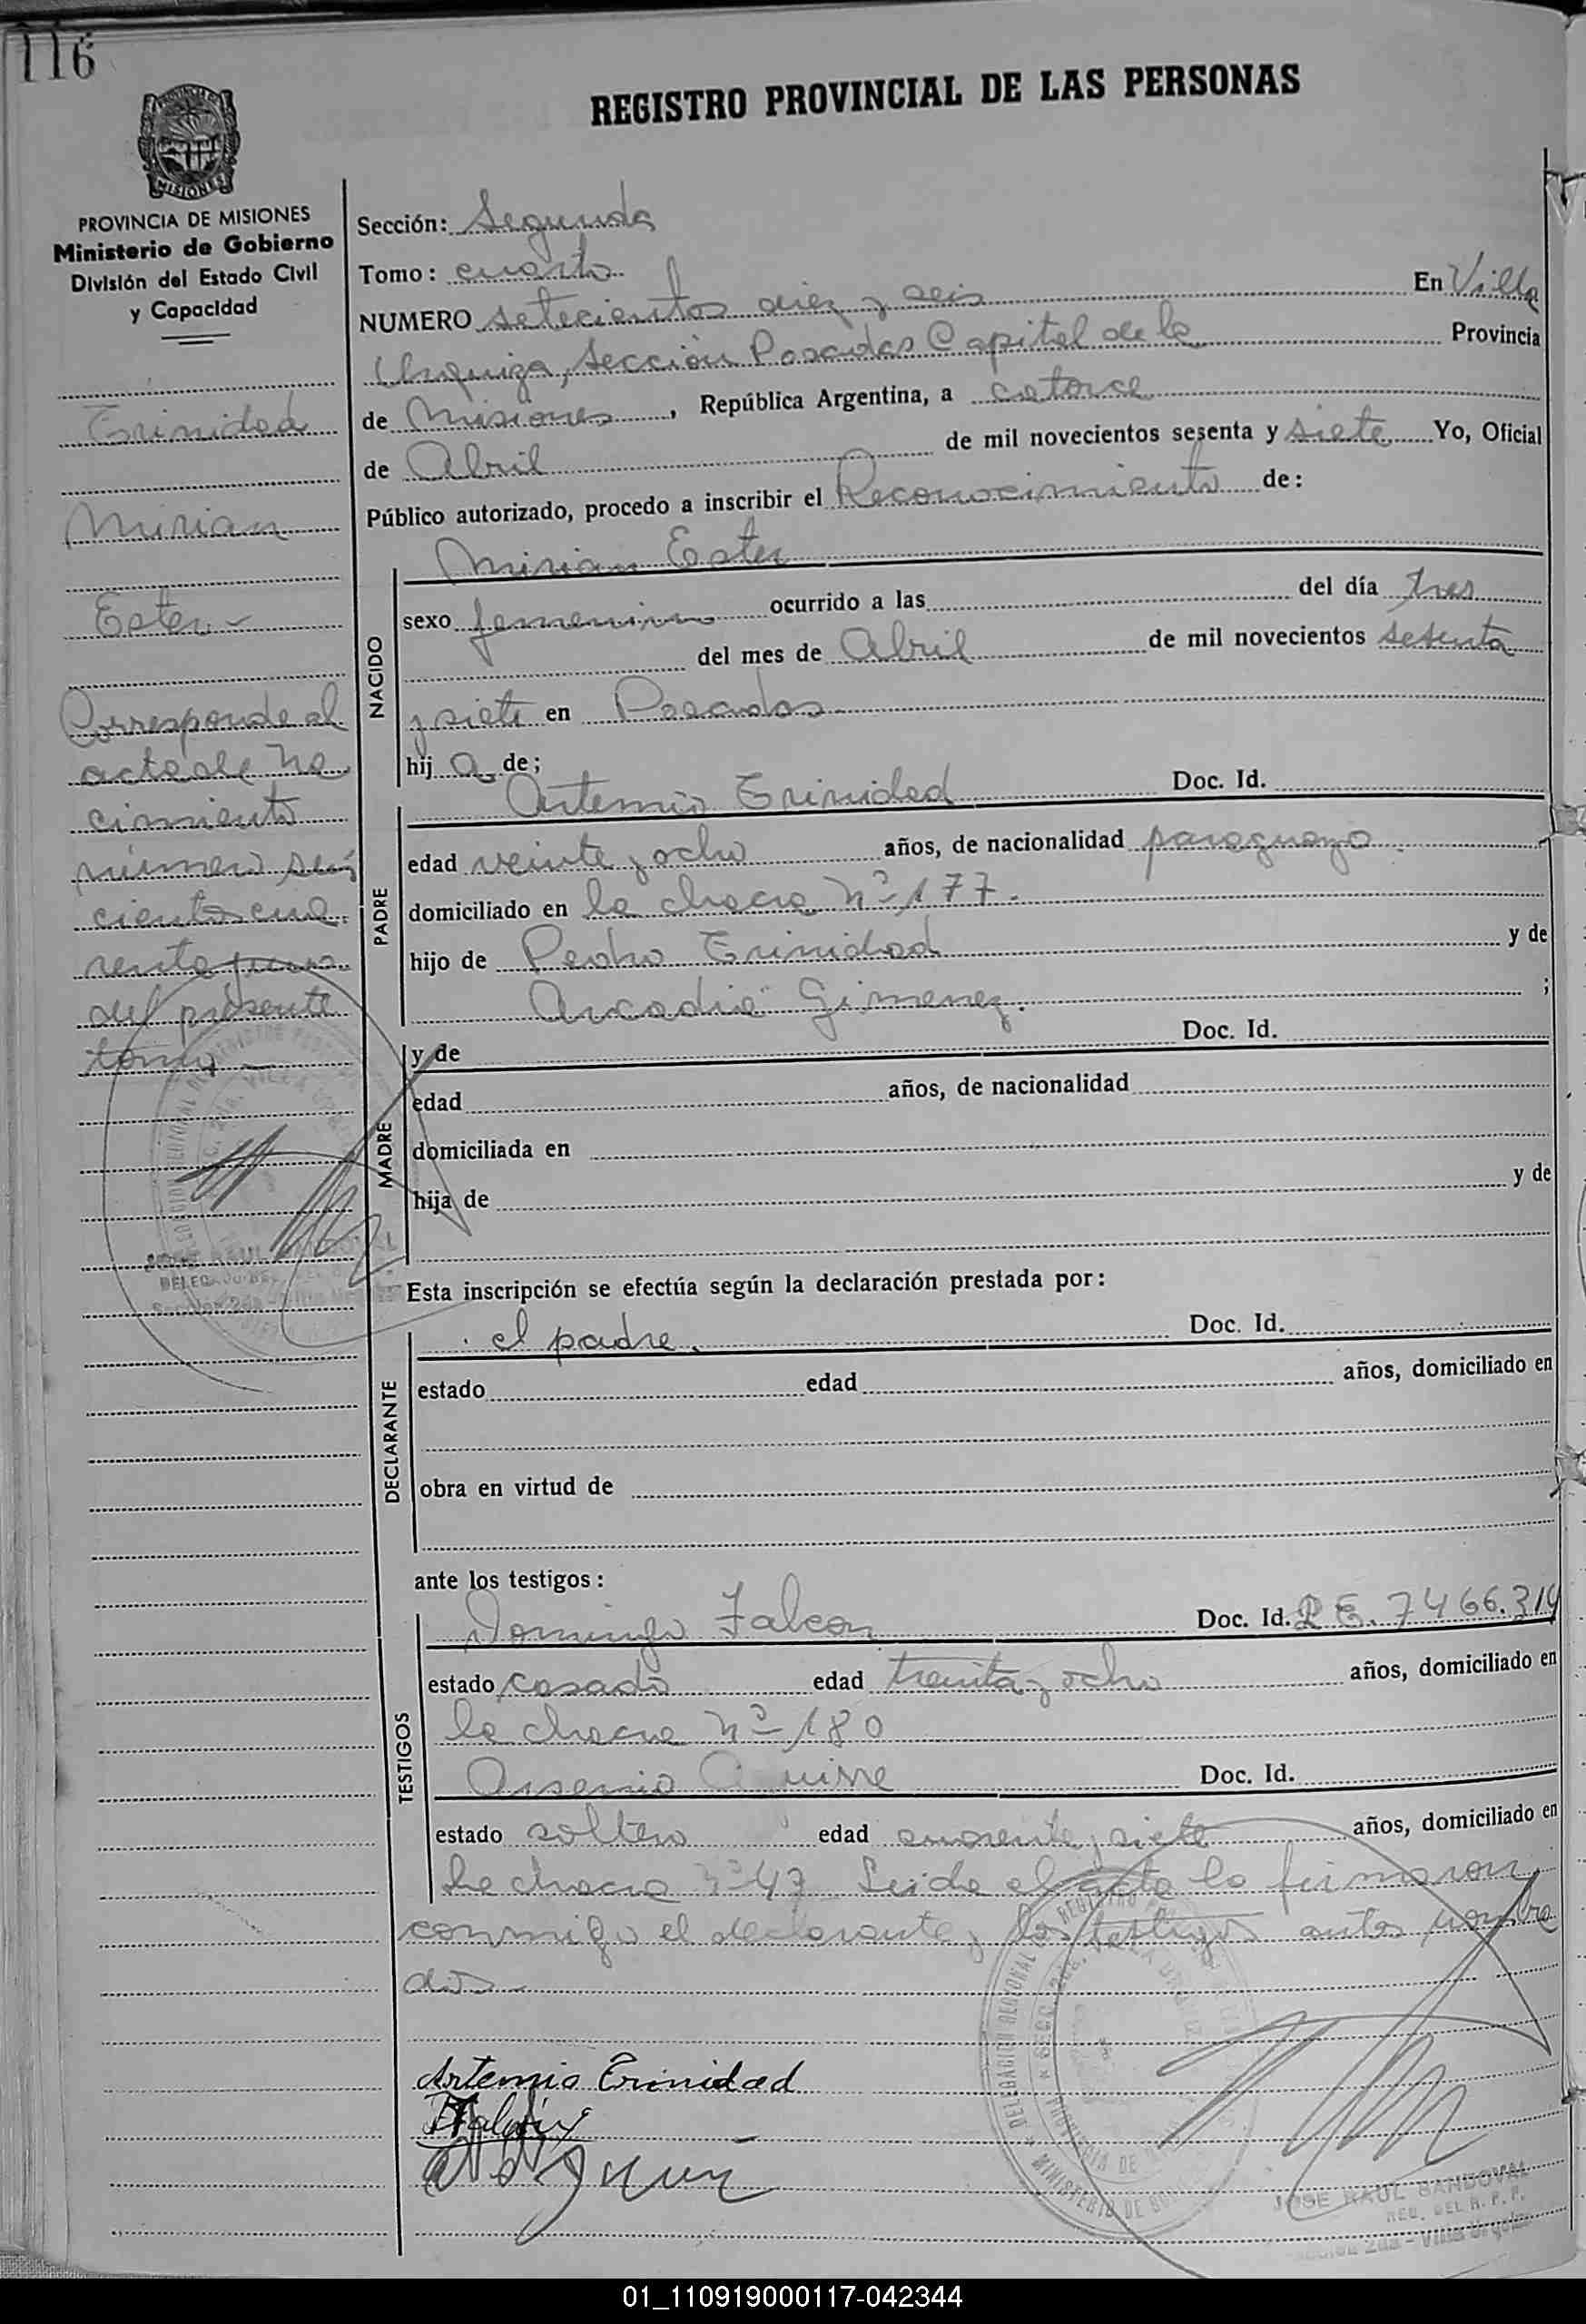 116
REGISTRO PROVINCIAL DE LAS PERSONAS
MISIONES
PROVINCIA DE MISIONES
Ministerio de Gobierno
División del Estado Civil
y Capacidad
Trinidad
Mirian
Ester -
Corresponde al
acta de na
cimiento
número seis
cientos cua
renta y uno
del presente
tomo -
Sección: Segunda
Tomo: cuarto
NUMERO setecientos diez y seis En Villa
Urquiza, Sección Posadas Capital de la Provincia
de Misiones, República Argentina, a catorce
de Abril de mil novecientos sesenta y siete Yo, Oficial
Público autorizado, procedo a inscribir el Reconocimiento de:
Mirian Ester
NACIDO
sexo femenino ocurrido a las del día tres
del mes de Abril de mil novecientos sesenta
y siete en Posadas
hij a de;
PADRE
Artemio Trinidad Doc. Id.
edad veinte y ocho años, de nacionalidad paraguayo.
domiciliado en la chacra Nº 177.
hijo de Pedro Trinidad y de
Arcadia Gimenez. ;
MADRE
y de Doc. Id.
edad años, de nacionalidad
domiciliada en
hija de y de
Esta inscripción se efectúa según la declaración prestada por:
DECLARANTE
el padre. Doc. Id.
estado edad años, domiciliado en
obra en virtud de
ante los testigos:
TESTIGOS
Domingo Falcon Doc. Id. 7466.314
estado casado edad treinta y ocho años, domiciliado en
la chacra Nº 180
Arsenio Doc. Id.
estado soltero edad cuarenta y siete años, domiciliado en
la chacra Nº 47. Leida el acta la firmaron
conmigo el declarante y los testigos antes nombra
dos -
Artemio Trinidad
JOSE RAUL SANDOVAL
01_110919000117-042344